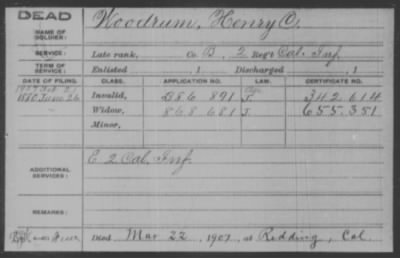 DEAD
NAME OF SOLDIER: Woodrum, Henry C.
SERVICE: Late rank, Co. B, 2 Reg't Cal. Inf.
TERM OF SERVICE: Enlisted 1 Discharged 1
DATE OF FILING. CLASS. APPLICATION NO. LAW. CERTIFICATE NO.
1880 June 26 Invalid, 386 891 J. 342.614
Widow, 868 681 J. 655.351
Minor,
ADDITIONAL SERVICES: E 2 Cal. Inf.
REMARKS:
Died Mar 22, 1907, at Redding, Cal.